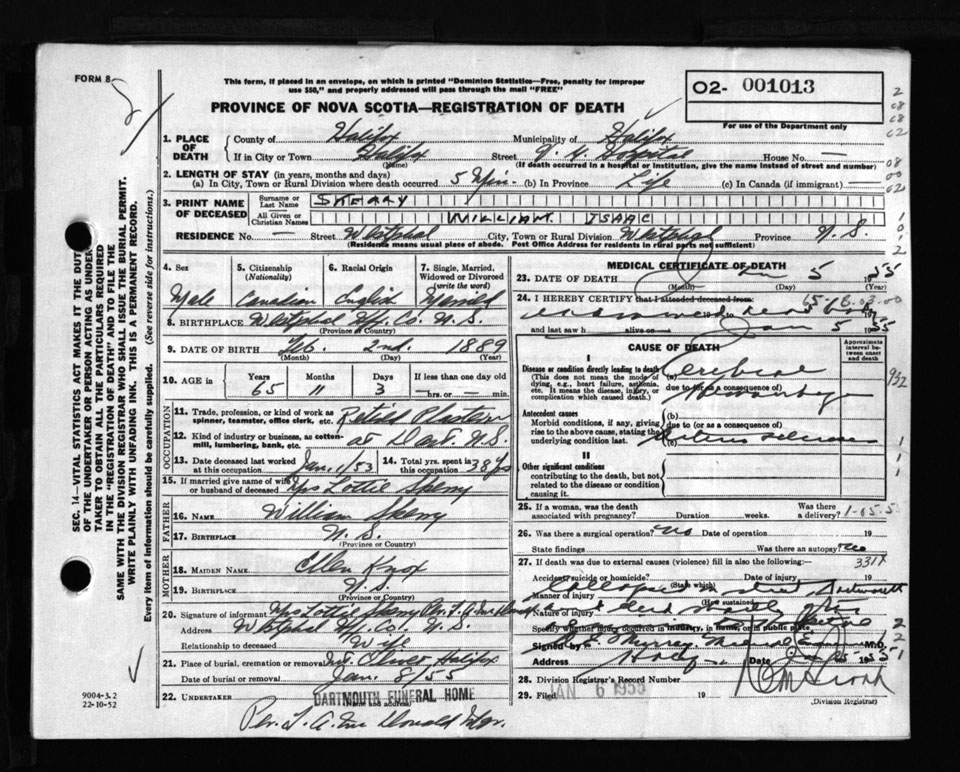 FORM 8
This form, if placed in an envelope, on which is printed "Dominion Statistics—Free, penalty for improper
use $50," and properly addressed will pass through the mail "FREE"
PROVINCE OF NOVA SCOTIA—REGISTRATION OF DEATH
O2- 001013
For use of the Department only
1. PLACE OF DEATH
County of Halifax Municipality of Halifax
If in City or Town Halifax Street V. G. Hospital House No. —
(Name) (If death occurred in a hospital or institution, give the name instead of street and number)
2. LENGTH OF STAY (in years, months and days)
(a) In City, Town or Rural Division where death occurred 5 (b) In Province Life (c) In Canada (if immigrant) —
3. PRINT NAME OF DECEASED
Surname or Last Name SKERRY
All Given or Christian Names WILLIAM ISAAC
RESIDENCE No. — Street Westphal City, Town or Rural Division Westphal Province N.S.
(Residence means usual place of abode. Post Office Address for residents in rural parts not sufficient)
4. Sex
Male
5. Citizenship (Nationality)
Canadian
6. Racial Origin
English
7. Single, Married, Widowed or Divorced (write the word)
Married
8. BIRTHPLACE Westphal Hfx. Co. N.S.
(Province or Country)
9. DATE OF BIRTH Feb. 2nd. 1889
(Month) (Day) (Year)
10. AGE in Years Months Days If less than one day old
65 11 3 — hrs. or — min.
OCCUPATION
11. Trade, profession, or kind of work as spinner, teamster, office clerk, etc. Retired
12. Kind of industry or business, as cotton-mill, lumbering, bank, etc. at Dart N.S.
13. Date deceased last worked at this occupation Jan. 1/53
14. Total yrs. spent in this occupation 38 yrs
15. If married give name of wife or husband of deceased Mrs Lottie Skerry
FATHER
16. NAME William Skerry
17. BIRTHPLACE N.S.
(Province or Country)
MOTHER
18. MAIDEN NAME Ellen Knox
19. BIRTHPLACE N.S.
(Province or Country)
20. Signature of informant Mrs Lottie Skerry
Address Westphal Hfx. Co. N.S.
Relationship to deceased Wife
21. Place of burial, cremation or removal Mt. Olivet, Halifax
Date of burial or removal Jan. 8/55
22. UNDERTAKER DARTMOUTH FUNERAL HOME
(Name and address)
Per. J. A. Mc Donald Mgr.
MEDICAL CERTIFICATE OF DEATH
23. DATE OF DEATH Jan 5 1955
(Month) (Day) (Year)
24. I HEREBY CERTIFY that I attended deceased from:
and last saw h alive on Jan 5 1955
CAUSE OF DEATH
Approximate interval between onset and death
I
Disease or condition directly leading to death
(This does not mean the mode of dying, e.g., heart failure, asthenia, etc. It means the disease, injury, or complication which caused death.)
(a) Cerebral
due to (or as a consequence of)
Hemorrhage
Antecedent causes
Morbid conditions, if any, giving rise to the above cause, stating the underlying condition last.
(b)
due to (or as a consequence of)
II
Other significant conditions
contributing to the death, but not related to the disease or condition causing it.
932
25. If a woman, was the death associated with pregnancy? Duration weeks. Was there a delivery?
26. Was there a surgical operation? no Date of operation 19
State findings Was there an autopsy? no
27. If death was due to external causes (violence) fill in also the following:
331X
Accident, suicide or homicide? Date of injury 19
(State which)
Manner of injury
(How sustained)
Nature of injury
Specify whether injury occurred in industry, in home, or in public place
Signed by M.D.
Address Date
28. Division Registrar's Record Number
29. Filed JAN 6 1955 19
(Division Registrar)
SEC. 14—VITAL STATISTICS ACT MAKES IT THE DUTY
OF THE UNDERTAKER OR PERSON ACTING AS UNDER-
TAKER TO OBTAIN ALL THE PARTICULARS REQUIRED
IN THE "REGISTRATION OF DEATH" AND TO FILE THE
SAME WITH THE DIVISION REGISTRAR WHO SHALL ISSUE THE BURIAL PERMIT.
WRITE PLAINLY WITH UNFADING INK. THIS IS A PERMANENT RECORD.
Every item of information should be carefully supplied. (See reverse side for instructions.)
9004-3.2
22-10-52